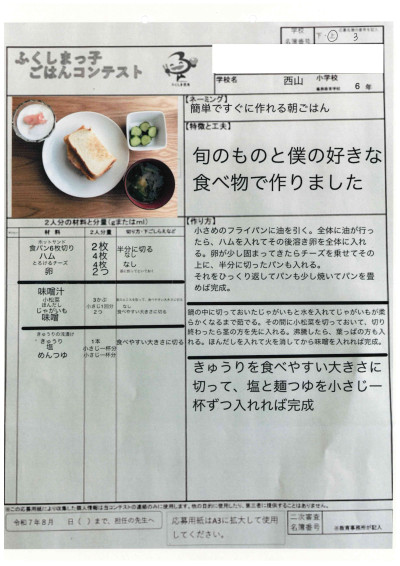 ふくしまっ子
ごはんコンテスト
学校
名簿番号
3
学校名
西山
小学校
6 年
【ネーミング】
簡単ですぐに作れる朝ごはん
【特徴と工夫】
旬のものと僕の好きな
食べ物で作りました
2人分の材料と分量(gまたはml)
材 料
2人分の分量
切り方・下ごしらえなど
ホットサンド
食パン6枚切り
2枚
半分に切る
ハム
4枚
なし
とろけるチーズ
4枚
なし
卵
2つ
味噌汁
小松菜
3かぶ
ほんだし
小さじ1回分
じゃがいも
2つ
食べやすい大きさに切る
味噌
きゅうりの浅漬け
きゅうり
1本
食べやすい大きさに切る
塩
小さじ一杯分
めんつゆ
小さじ一杯分
【作り方】
小さめのフライパンに油を引く。全体に油が行っ
たら、ハムを入れてその後溶き卵を全体に入れ
る。卵が少し固まってきたらチーズを乗せてその
上に、半分に切ったパンも入れる。
それをひっくり返してパンも少し焼いてパンを畳
めば完成。
鍋の中に切っておいたじゃがいもと水を入れてじゃがいもが柔
らかくなるまで茹でる。その間に小松菜を切っておいて、切り
終わったら茎の方を先に入れる。沸騰したら、葉っぱの方も入
れる。ほんだしを入れて火を消してから味噌を入れれば完成。
きゅうりを食べやすい大きさに
切って、塩と麺つゆを小さじ一
杯ずつ入れれば完成
※この応募用紙により収集した個人情報は当コンテストの連絡のみに使用します。他の目的に使用したり、第三者に提供することはありません。
令和7年8月 日( )まで、担任の先生へ
応募用紙はA3に拡大して使用
してください。
二次審査
名簿番号
※教育事務所が記入